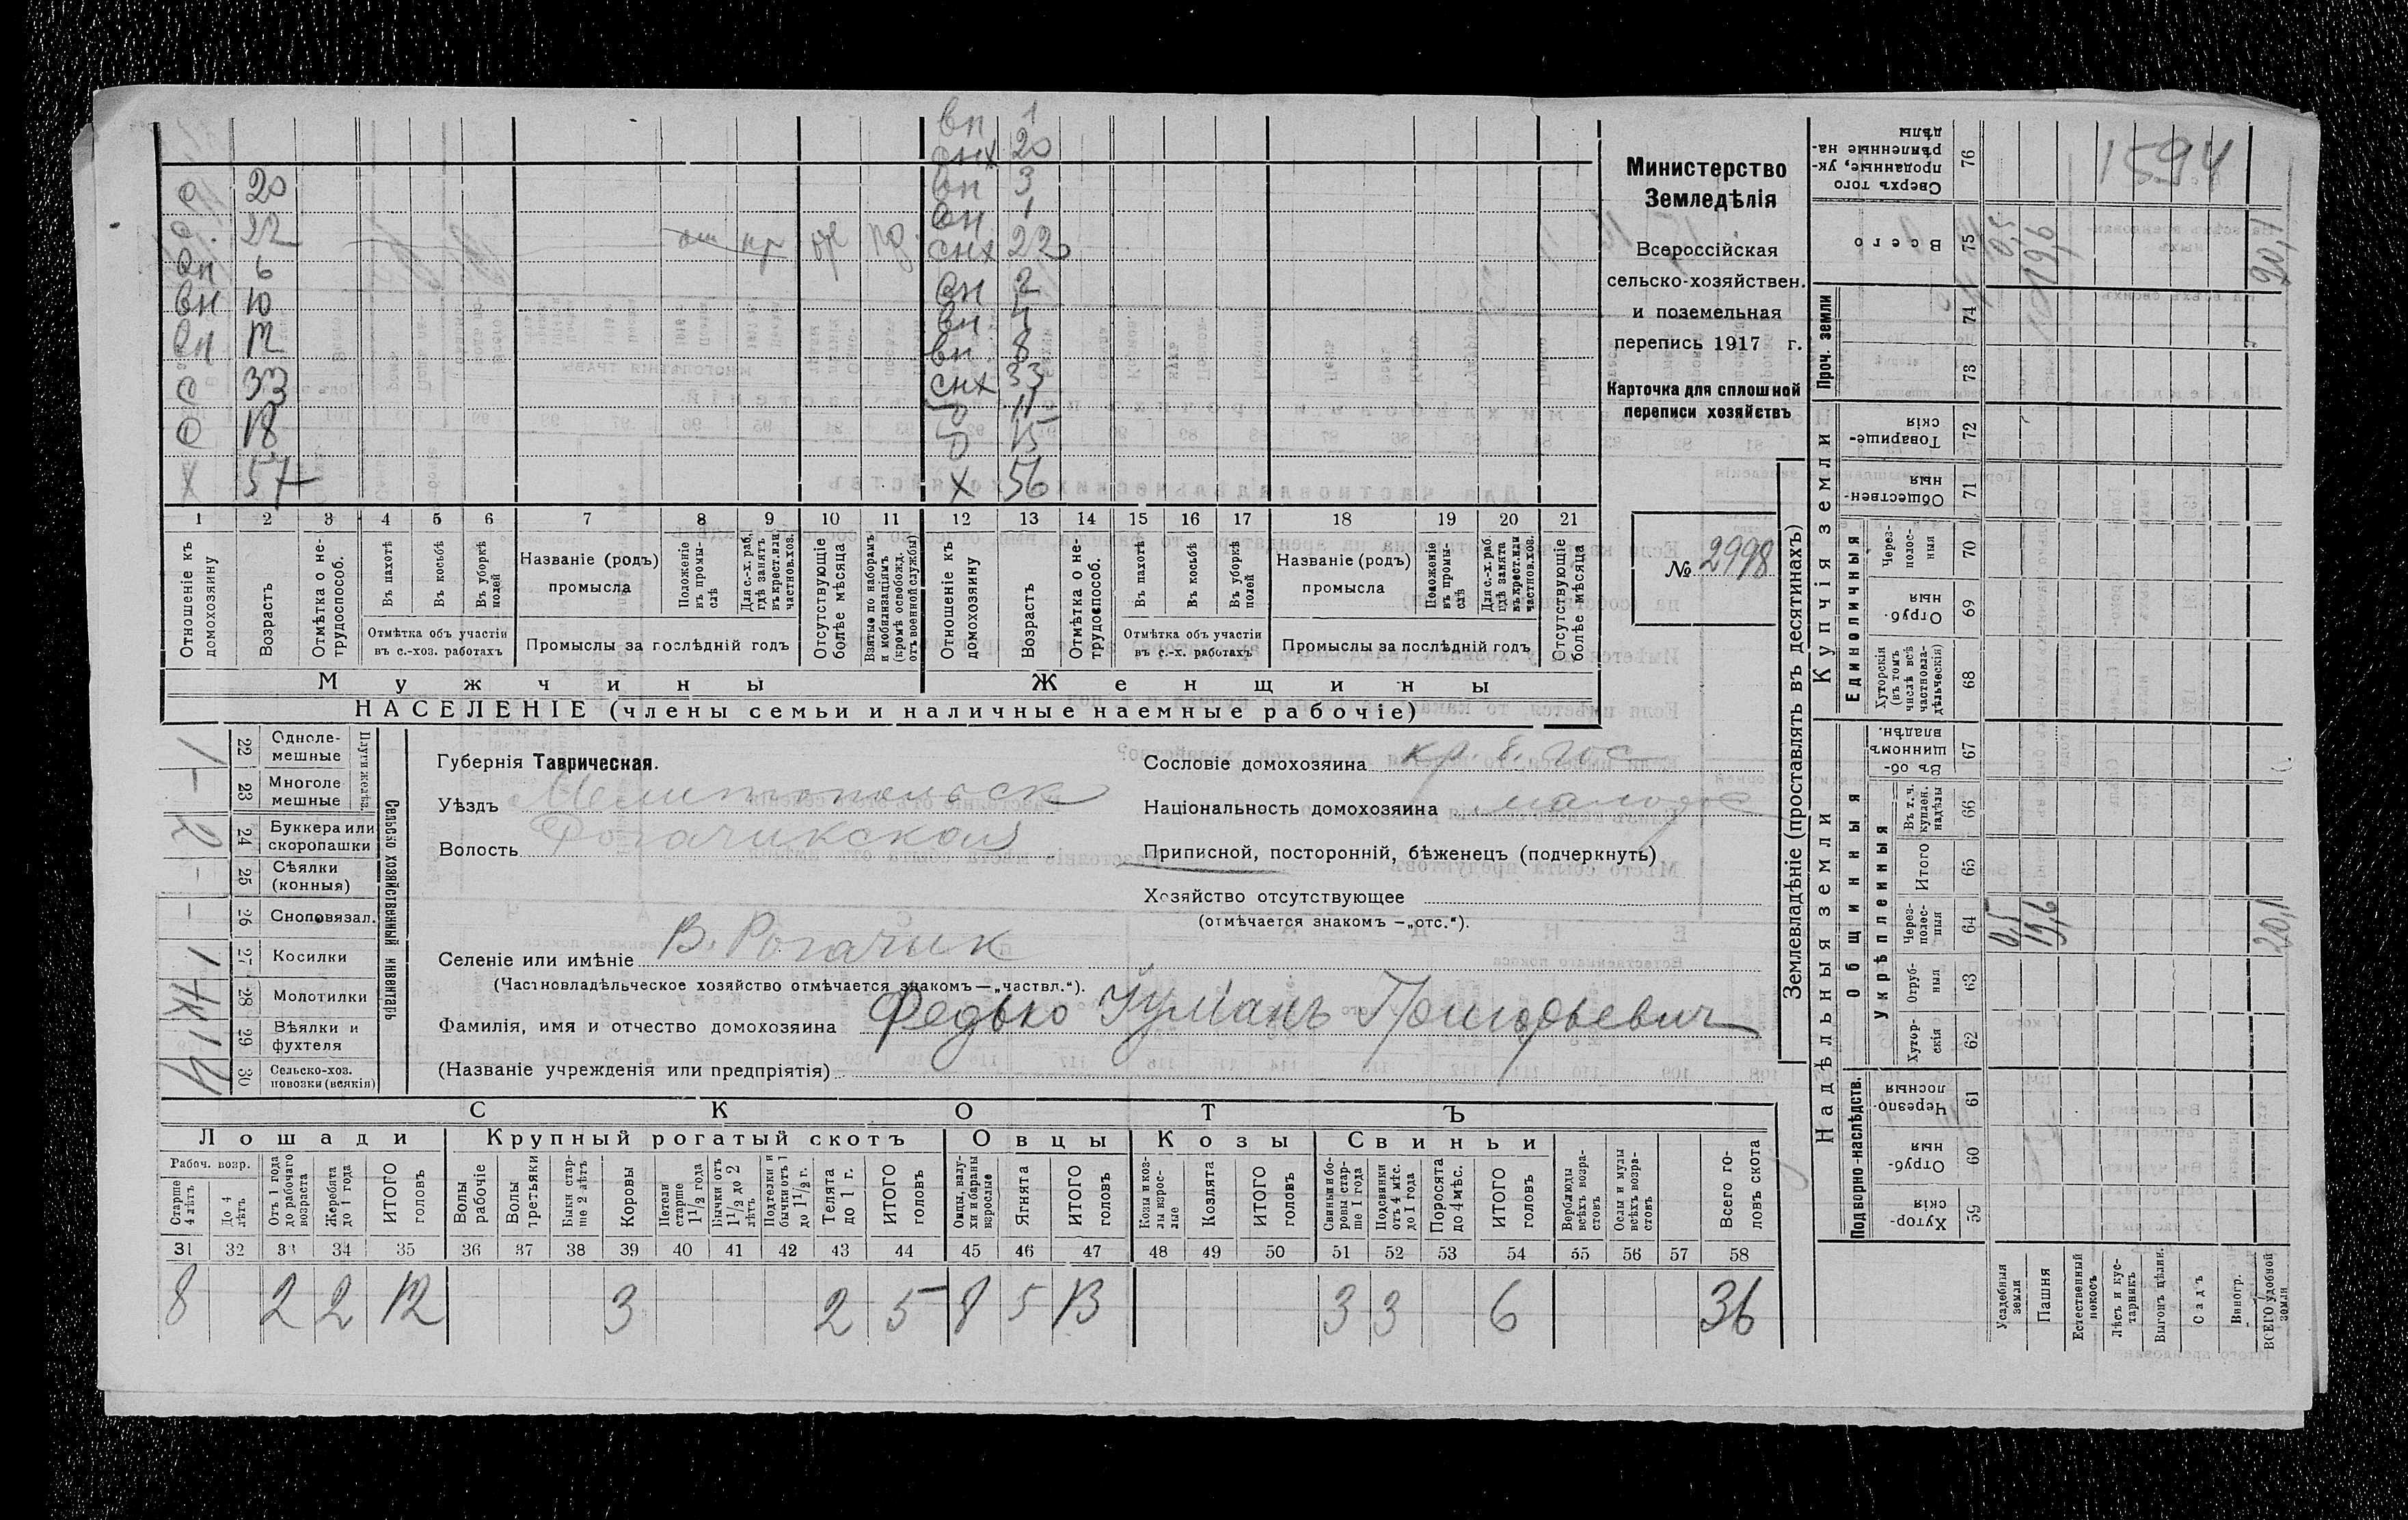 вп 1
снх 20
с 20 вп 3
с. 22 пр вн 1
снх 22
вп 6 вн 2
вн 10 вп 4
вп 12 вп 8
с 33 снх 33
с 18 д 11
д 15
х 57 х 56
1 2 3 4 5 6 7 8 9 10 11 12 13 14 15 16 17 18 19 20 21
Отношеніе къ домохозяину
Возрастъ
Отмѣтка о не-трудоспособ.
Въ пахотѣ
Въ косьбѣ
Въ уборкѣ полей
Отмѣтка объ участіи
въ с.-хоз. работахъ
Названіе (родъ)
промысла
Положеніе въ промы-слѣ
Для с.-х. раб., гдѣ занятъ въ крест. или частнов. хоз.
Промыслы за послѣдній годъ
Отсутствующіе болѣе мѣсяца
Взятые по наборамъ и мобилизаціямъ (кромѣ освобожд. отъ военной службы)
Отношеніе къ домохозяину
Возрастъ
Отмѣтка о не-трудоспособ.
Въ пахотѣ
Въ косьбѣ
Въ уборкѣ полей
Отмѣтка объ участіи
въ с.-х. работахъ
Названіе (родъ)
промысла
Положеніе въ промы-слѣ
Для с.-х. раб. гдѣ занята въ крест. или частнов. хоз.
Промыслы за послѣдній годъ
Отсутствующіе болѣе мѣсяца
Мужчины
Женщины
НАСЕЛЕНІЕ (члены семьи и наличные наемные рабочіе)
Министерство
Земледѣлія
Всероссійская
сельско-хозяйствен.
и поземельная
перепись 1917 г.
Карточка для сплошной
переписи хозяйствъ
№ 2998
22 Одноле-мешные 1
23 Многоле мешные –
Плуги желѣз.
24 Буккера или скоропашки 2
25 Сѣялки (конныя) –
26 Сноповязал. –
27 Косилки 1
28 Молотилки К
29 Вѣялки и фухтеля 1
30 Сельско-хоз. повозки (всякія) 4
Сельско хозяйственный инвентарь
Губернія Таврическая.
Уѣздъ Мелитопольск
Волость Рогачикская
Сословіе домохозяина
Національность домохозяина малорос
Приписной, посторонній, бѣженецъ (подчеркнуть)
Хозяйство отсутствующее
(отмѣчается знакомъ —„отс.“).
Селеніе или имѣніе В. Рогачик
(Частновладѣльческое хозяйство отмѣчается знакомъ—„частвл.“).
Фамилія, имя и отчество домохозяина Федько Григорьевич
(Названіе учрежденія или предпріятія)
СКОТЪ
Лошади
Крупный рогатый скотъ
Овцы
Козы
Свиньи
Рабоч. возр.
Старше 4 лѣтъ
До 4 лѣтъ
Отъ 1 года до рабочаго возраста
Жеребята до 1 года
ИТОГО головъ
Волы рабочіе
Волы третьяки
Быки стар-ше 2 лѣтъ
Коровы
Нетели старше 1 1/2 года
Бычки отъ 1 1/2 до 2 лѣтъ
Подтелки и бычки отъ 1 до 1 1/2 г.
Телята до 1 г.
ИТОГО головъ
Овцы, валу-хи и бараны взрослые
Ягнята
ИТОГО головъ
Козы и коз-лы взрос-лые
Козлята
ИТОГО головъ
Свиньи и бо-ровы стар-ше 1 года
Подсвинки отъ 4 мѣс. до 1 года
Поросята до 4 мѣс.
ИТОГО головъ
Верблюды всѣхъ возра-стовъ
Ослы и мулы всѣхъ возра-стовъ
Всего го-ловъ скота
31 32 33 34 35 36 37 38 39 40 41 42 43 44 45 46 47 48 49 50 51 52 53 54 55 56 57 58
8 2 2 12 3 2 5 8 5 13 3 3 6 36
Землевладѣніе (проставлять въ десятинахъ)
Купчія земли
Надѣльныя земли
Проч. земли
Единоличныя
Общинныя
Укрѣпленныя
Подворно-наслѣдств.
76 Сверхъ того проданные, ук-рѣпленные на-дѣлы
1594
75 Всего 0,5 19,6 20,1
74
73
72 Товарище-скія
71 Обществен-ныя
70 Через-полос-ныя
69 Отруб-ныя
68 Хуторскія (въ томъ числѣ всѣ частновла-дѣльческія)
67 Въ об-щинномъ владѣн.
66 Въ т. ч. куплен. надѣлы
65 Итого
64 Через-полос-ныя 0,5 19,6 20,1
63 Отруб-ныя
62 Хутор-скія
61 Черезпо-лосныя
60 Отруб-ныя
59 Хутор-скія
Усадебныя земли
Пашня
Естественный покосъ
Лѣсъ и кус-тарникъ
Выгонъ цѣлин.
Садъ
Виногр.
ВСЕГО удобной земли